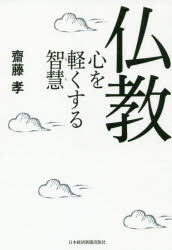 仏教
心を
軽くする
智慧
齋藤 孝
日本経済新聞出版社